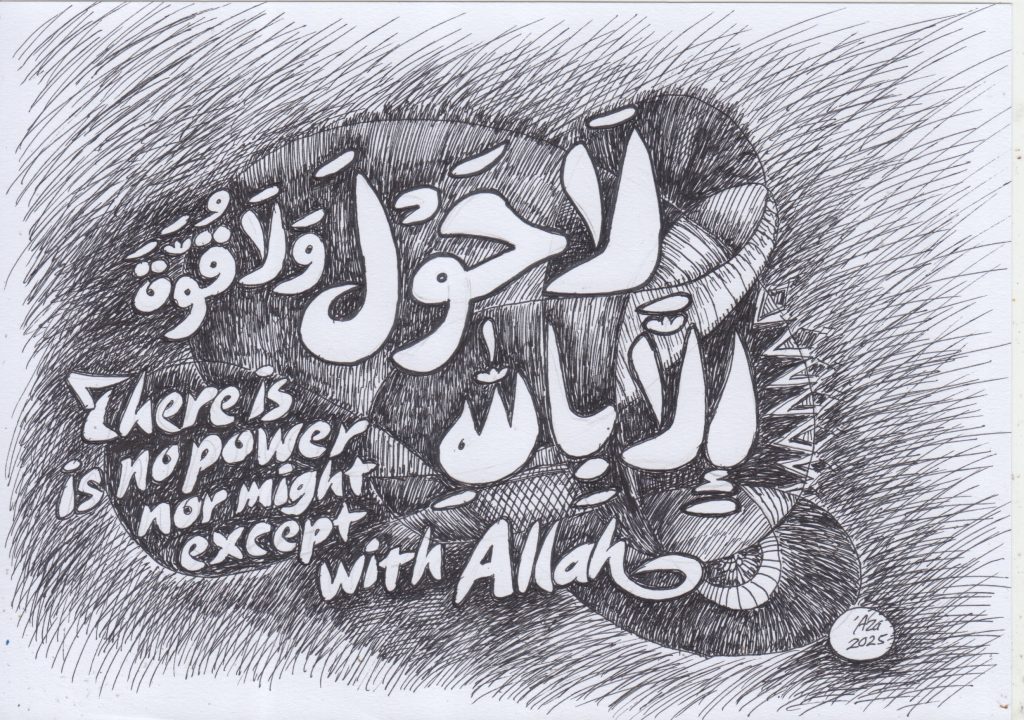 لَا حَوْلَ وَلَا قُوَّةَ
إِلَّا بِاللّٰهِ
There is
is no power
nor might
except
with Allah
2025